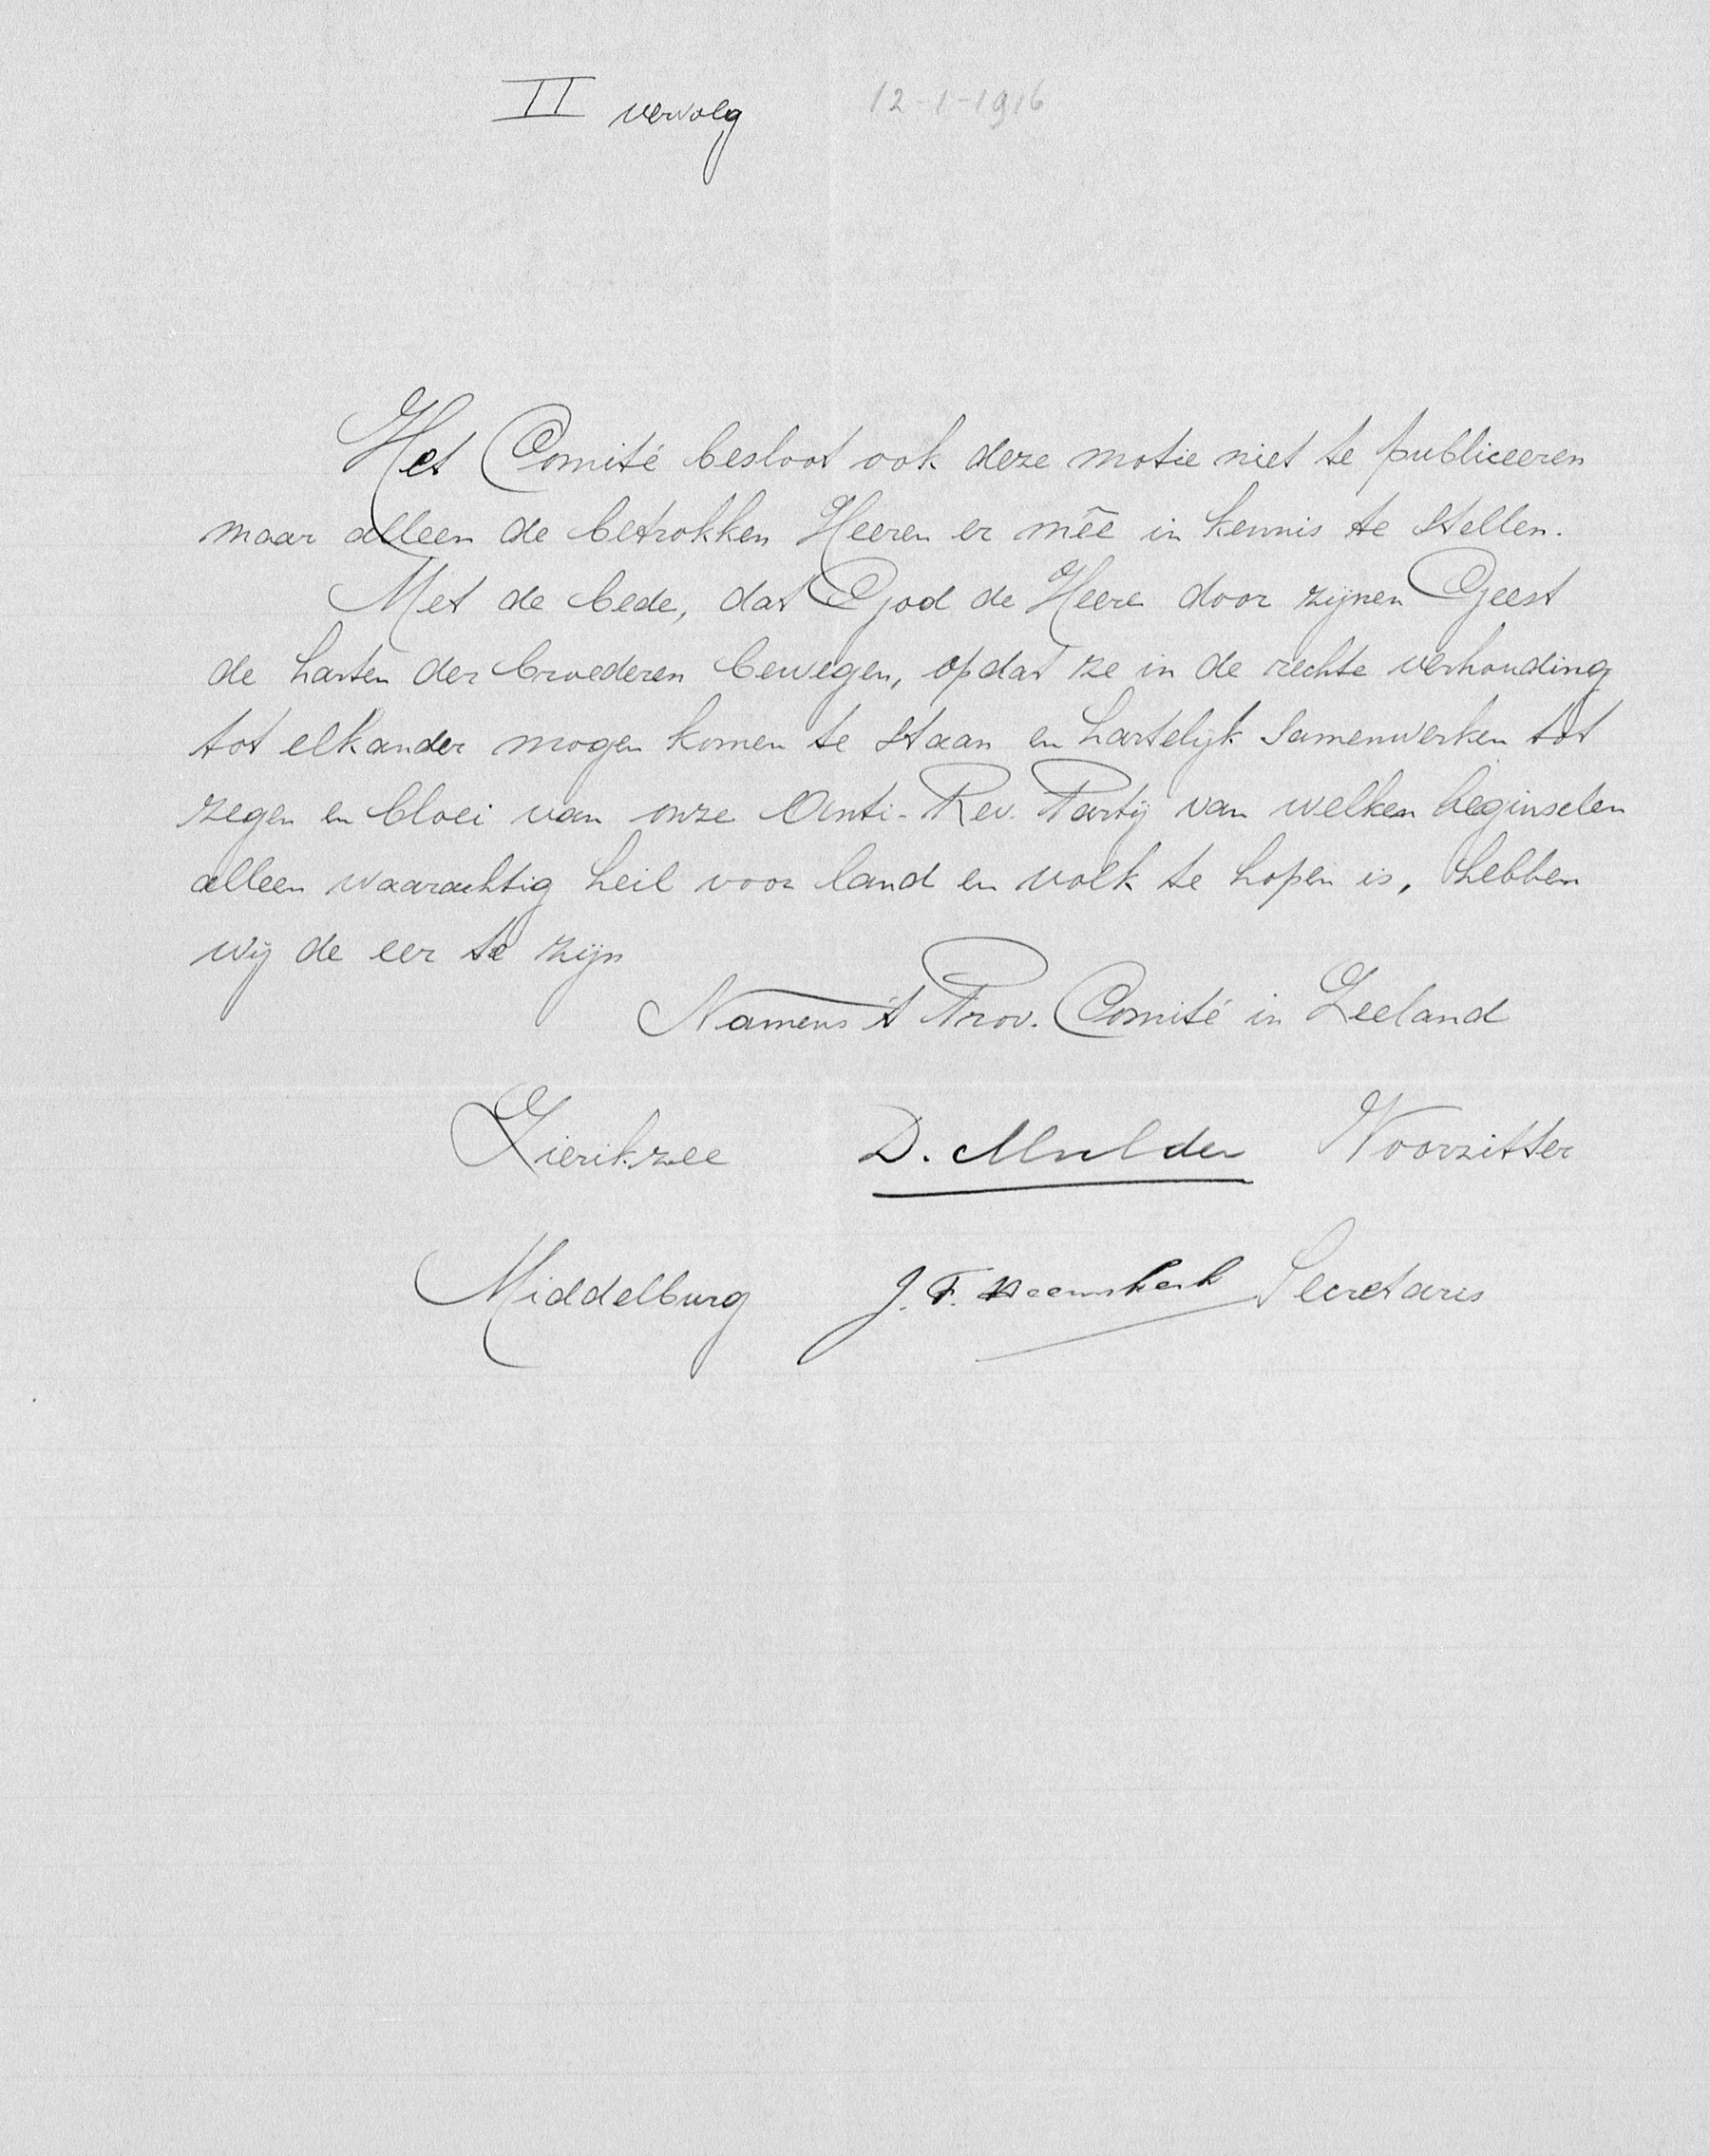 II vervolg 12-1-1916
Het Comité besloot ook deze motie niet te publiceeren
maar alleen de betrokken Heeren er mêe in kennis te stellen.
Met de bede, dat God de Heere door zijnen Geest
de harten der broederen bewegen, opdat ze in de rechte verhouding
tot elkander mogen komen te staan en hartelijk samenwerken tot
zegen en bloei van onze Anti-Rev. Partij van welken beginselen
alleen waarachtig heil voor land en volk te hopen is, hebben
wij de eer te zijn
Namens 't Prov. Comité in Zeeland
Zierikzee D. Mulder Voorzitter
Middelburg J. F. Heemskerk Secretaris